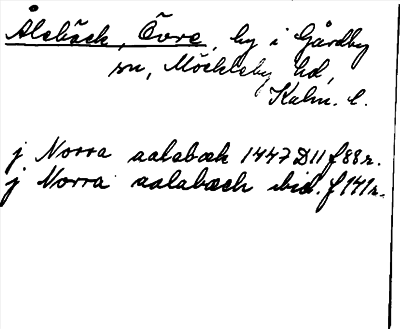 Ålebäck, Övre, by i Gårdby
sn, Möckleby hd,
Kalm. l.
j Norra aalabæk 1447 D11 f 88 r.
j Norra aalabæch ibid. f 141 r.